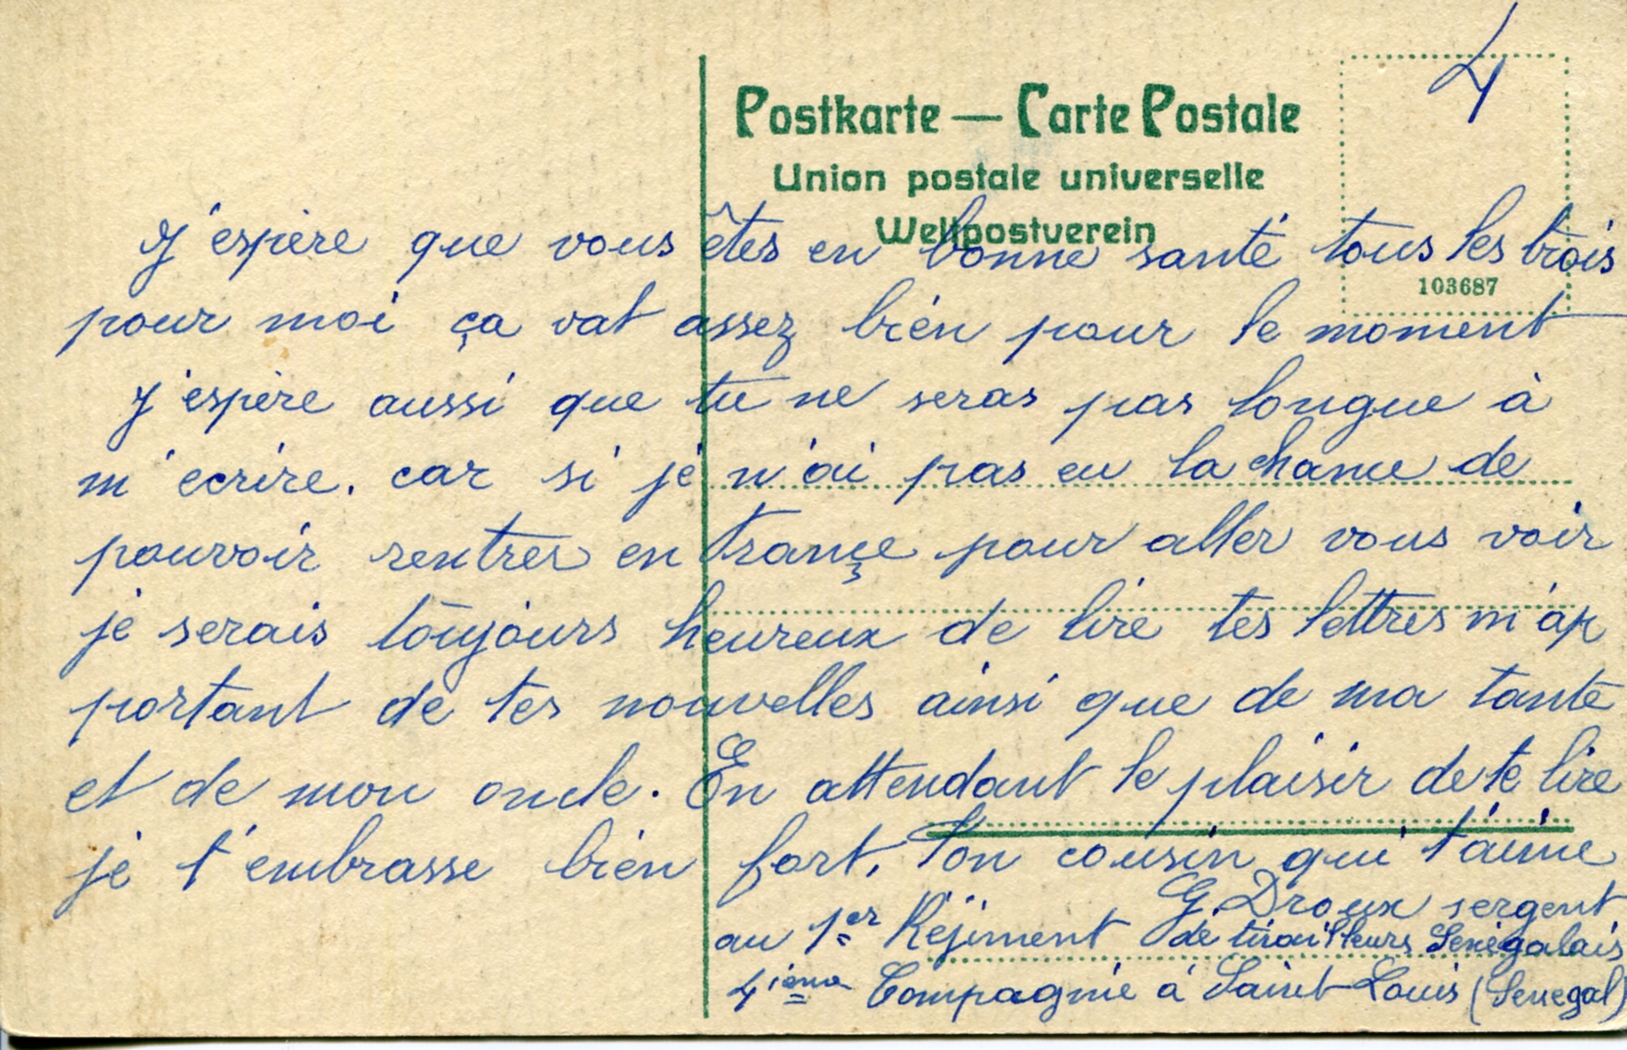 4
Postkarte — Carte Postale
Union postale universelle
Weltpostverein
103687
J'espère que vous êtes en bonne santé tous les trois
pour moi ça vat assez bien pour le moment
J'espère aussi que tu ne seras pas longue à
m'ecrire. car si je n'ai pas eu la chance de
pouvoir rentrer en françe pour aller vous voir
je serais toujours heureux de lire tes lettres m'ap
portant de tes nouvelles ainsi que de ma tante
et de mon oncle. En attendant le plaisir de te lire
je t'embrasse bien fort. Ton cousin qui t'aime
G. Droux sergent
au 1er Régiment de tirailleurs Senégalais
4ième Compagnie à Saint-Louis (Senegal)